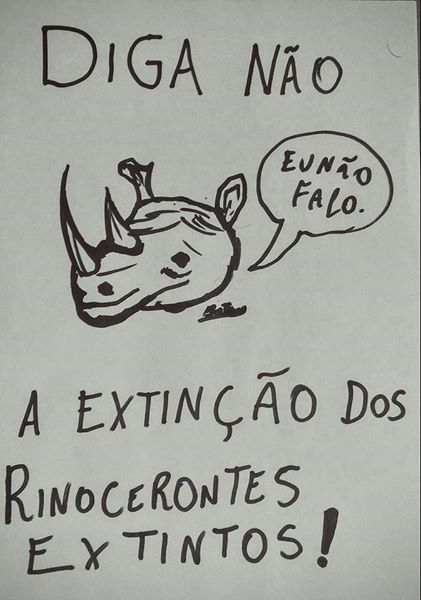 DIGA NÃO
EU NÃO
FALO.
A EXTINÇÃO DOS
RINOCERONTES
EXTINTOS!